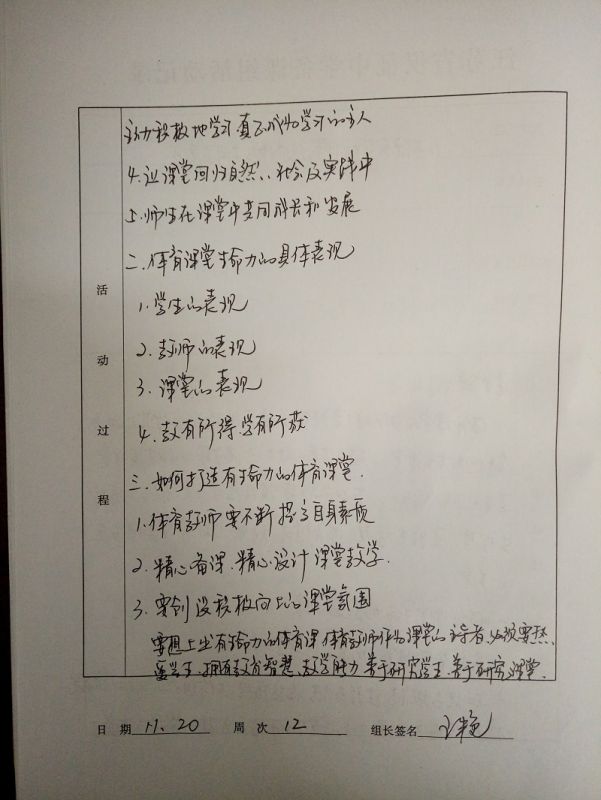 主动积极地学习,真正成为学习的主人
4.让课堂回归自然、社会及实践中
5.师生在课堂中共同成长和发展
二.体育课堂生命力的具体表现
1.学生的表现
2.教师的表现
3.课堂的表现
4.教有所得,学有所获
三.如何打造有生命力的体育课堂.
1.体育教师要不断提高自身素质
2.精心备课,精心设计课堂教学.
3.要创设积极向上的课堂氛围
要想上出有生命力的体育课,体育教师作为课堂的主导者,必须要热
爱学生,拥有教育智慧、教学能力,善于研究学生,善于研究课堂.
活动过程
日 期 11.20 周 次 12 组长签名